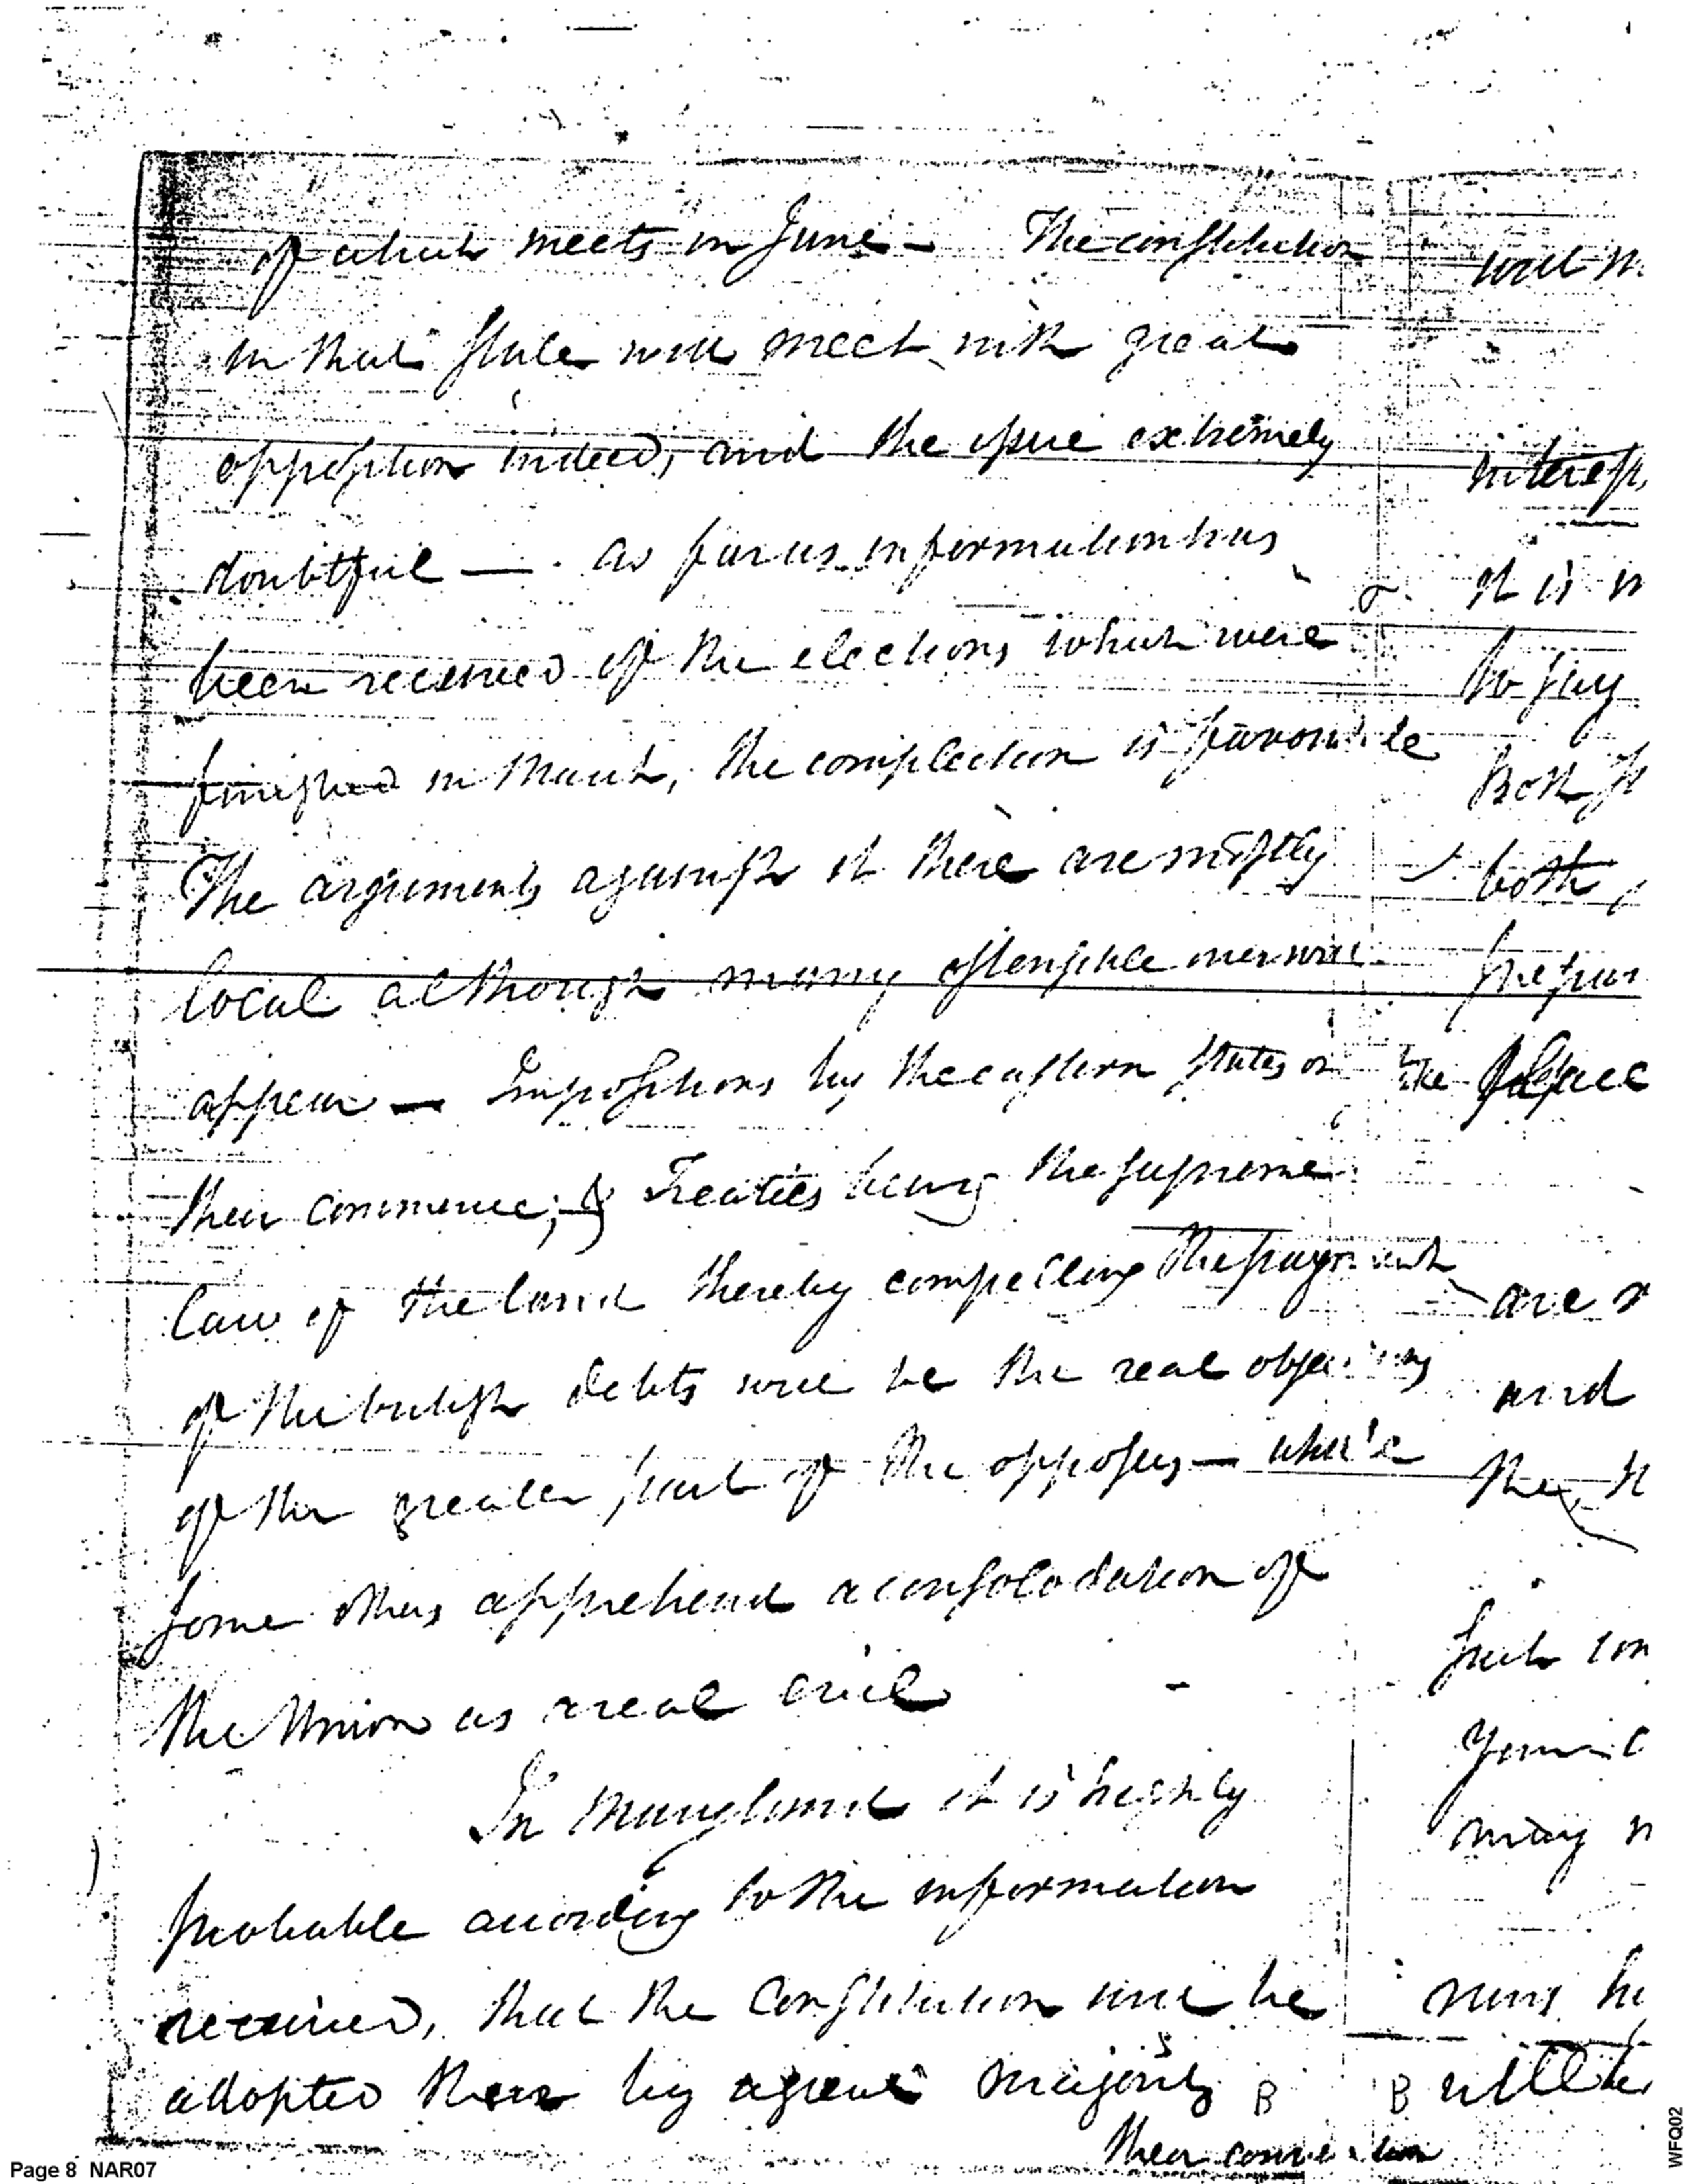 of which meets in June — The constitution
in that state will meet with great
opposition indeed, and the issue extremely
doubtful —. as far as information has
been received of the elections which were
finished in March, the complection is favorable
The arguments against it there are mostly
local although many ostensible ones will
appear — Impositions by the eastern states on
their commerce; & Treaties being the supreme
law of the land thereby compelling the payment
of the british debts will be the real objections
of the greater part of the opposers — while
some others apprehend a consolodation of
the Union as a real evil
In Maryland it is highly
probable according to the information
received, that the Constitution will be
adopted there by a great majority B
their convention
will
interest
it is
to say
Both
both
the
are
and
the
such
may
B
Page 8 NAR07
WFQ02